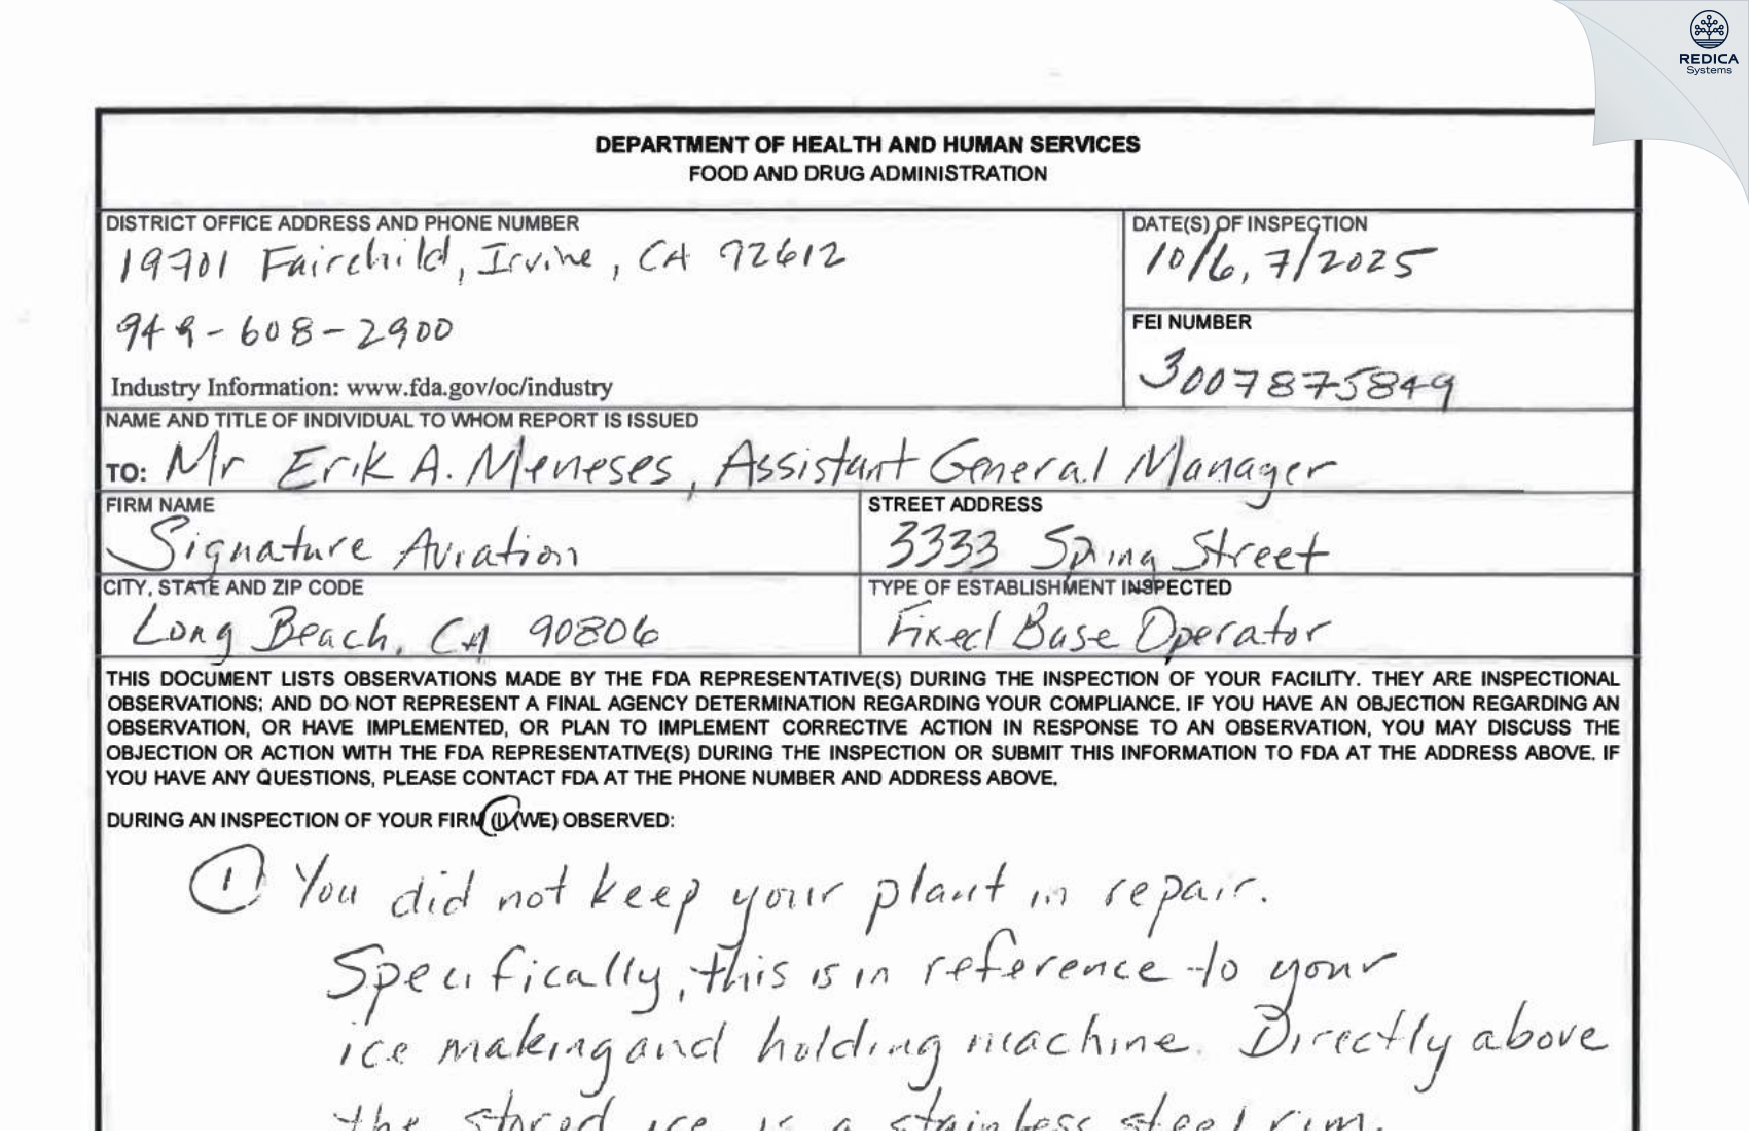 REDICA
Systems
DEPARTMENT OF HEALTH AND HUMAN SERVICES
FOOD AND DRUG ADMINISTRATION
DISTRICT OFFICE ADDRESS AND PHONE NUMBER
19701 Fairchild, Irvine, CA 92612
949-608-2900
Industry Information: www.fda.gov/oc/industry
DATE(S) OF INSPECTION
10/6, 7/2025
FEI NUMBER
3007875849
NAME AND TITLE OF INDIVIDUAL TO WHOM REPORT IS ISSUED
TO: Mr Erik A. Meneses, Assistant General Manager
FIRM NAME
Signature Aviation
STREET ADDRESS
3333 Spring Street
CITY, STATE AND ZIP CODE
Long Beach, CA 90806
TYPE OF ESTABLISHMENT INSPECTED
Fixed Base Operator
THIS DOCUMENT LISTS OBSERVATIONS MADE BY THE FDA REPRESENTATIVE(S) DURING THE INSPECTION OF YOUR FACILITY. THEY ARE INSPECTIONAL
OBSERVATIONS; AND DO NOT REPRESENT A FINAL AGENCY DETERMINATION REGARDING YOUR COMPLIANCE. IF YOU HAVE AN OBJECTION REGARDING AN
OBSERVATION, OR HAVE IMPLEMENTED, OR PLAN TO IMPLEMENT CORRECTIVE ACTION IN RESPONSE TO AN OBSERVATION, YOU MAY DISCUSS THE
OBJECTION OR ACTION WITH THE FDA REPRESENTATIVE(S) DURING THE INSPECTION OR SUBMIT THIS INFORMATION TO FDA AT THE ADDRESS ABOVE. IF
YOU HAVE ANY QUESTIONS, PLEASE CONTACT FDA AT THE PHONE NUMBER AND ADDRESS ABOVE.
DURING AN INSPECTION OF YOUR FIRM (I) (WE) OBSERVED:
1 You did not keep your plant in repair.
Specifically, this is in reference to your
ice making and holding machine. Directly above
the stored ice is a stainless steel rim.